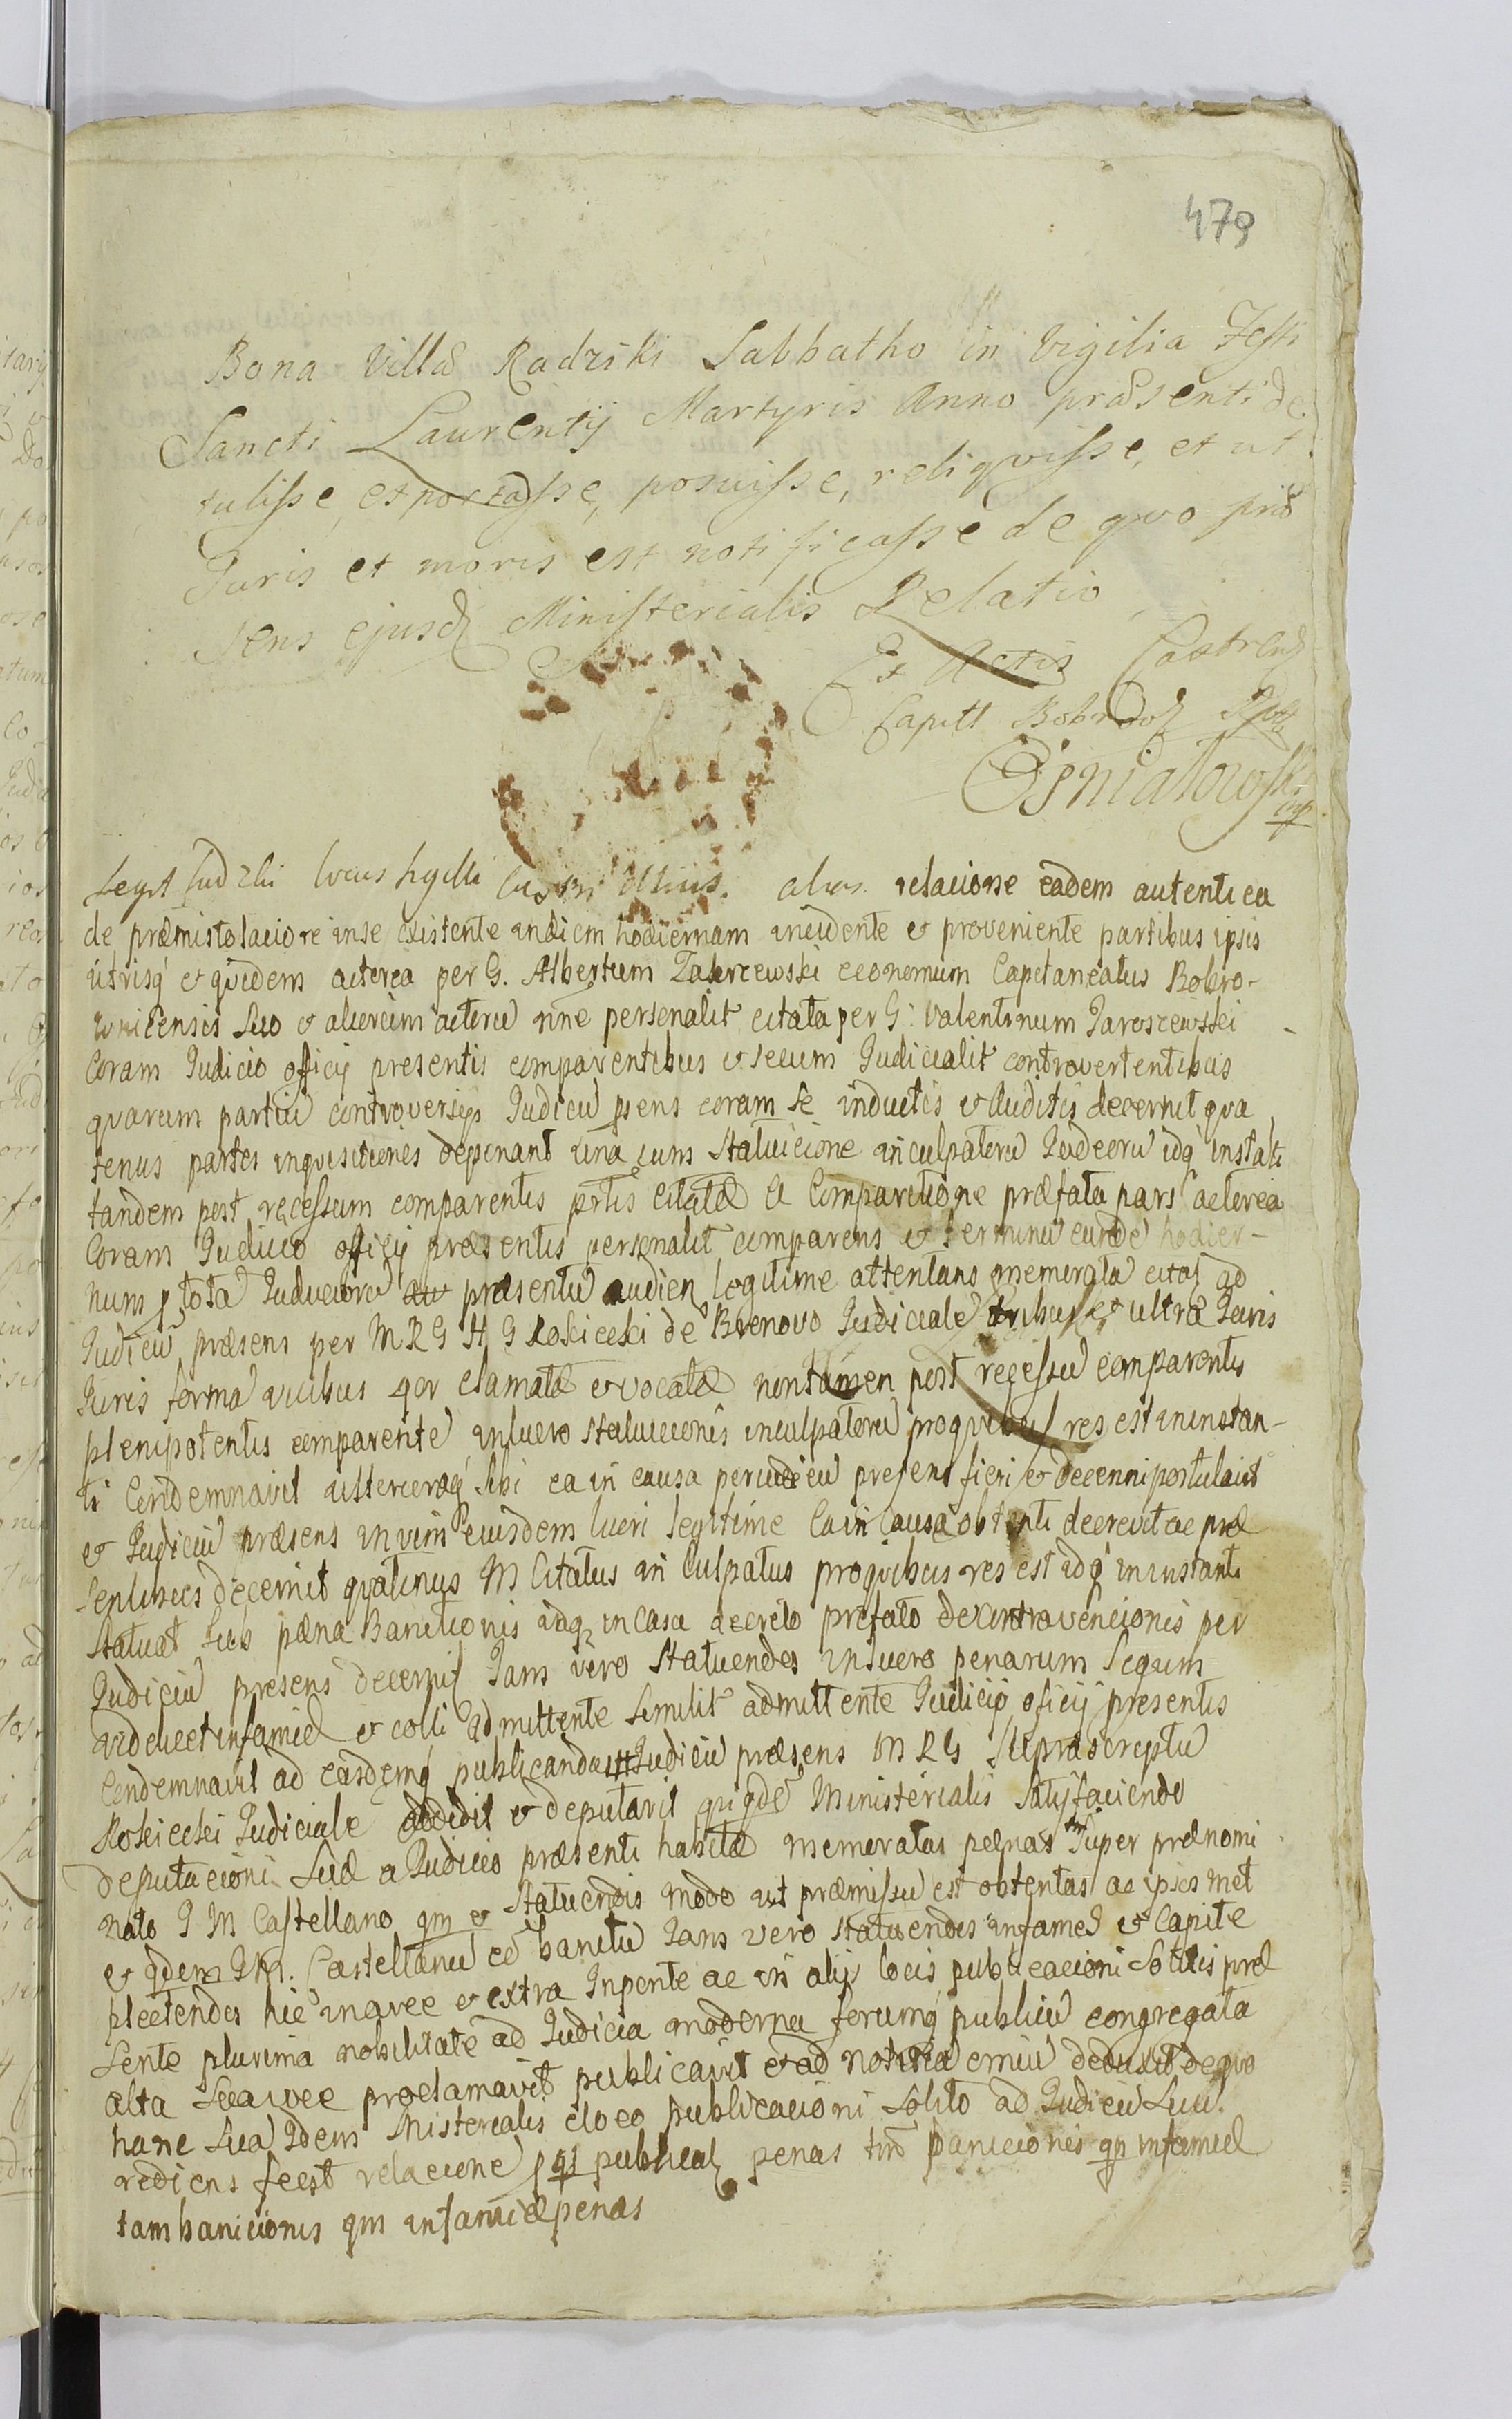 479
Bona Villæ Radziki Sabbatho in Vigilia Festi
Sancti Laurentij Martyris Anno præsenti de
tulisse, et portasse, posuisse, reliqvisse, et ut
Juris et moris est notificasse de qvo præ
sens ejusd Ministerialis Relatio
Ex Actis Castren
Capitl Bobrov
Osniatowski
mp
locus sigilli alias relacione eadem autentica
de præmisto lacione inse existente indiem hodiernam incidente et proveniente partibus ipsis
utrisq et quidem actorea per G. Albertum Zakrzewski Economum Capitaneatus Bobro-
wnicensis suo et aliorum actoru nne personalit citata per G. Valentinum Jaroszewski
Coram Judicio officij presentis comparentibus et secum Judicialit controvertentibus
quarum partiu controversijs Judiciu psens coram se inductis et auditis decernit qva
tenus partes inqvisitiones depinant una cum Statuicione inculpatoru Judeoru idq instati
tandem post recessum comparentis prtis Citatæ a Comparitione præfata pars actorea
Coram Judicio officij præsentis personalit comparens et terminu eunde hodier-
num p tota Juducioru præsentiu audien legitime attentans memorata citaj ad
Judiciu præsens per M R G H G Koscicki de Brenovo Judiciale tribus et ultra Juris
Juris forma vicibus qor clamatæ evocatæ nontamen post recessu comparentis
plenipotentis comparente inlucro statuicionis inculpatoru proqvibus res est ininstan-
ti Condemnavit ulterioraq sibi ea in causa perJudiciu presens fieri et decenni postulavit
et Judiciu præsens invim eiusdem lucri legitime ea in causa obtenti decrevit ac præ
sentibus decernit qvatinus M Citatus in Culpatus proqvibus res est idq ininstanti
statuat sub pæna Banitionis idq in Casu decreto prefato decontravencionis per
Judiciu presens decernit Jam vero Statuendos inlucro penarum Sequm
videlicet infamiæ et colli admittente similit admittente Judicio oficij presentis
Condemnavit ad easdemq publicandas Judiciu præsens M R G Suprascriptu
Koscicki Judiciale addidit et deputavit qui qde Ministerialis Satisfaciendo
deputacioni suæ a Judicio præsenti habitæ memoratas pænas Super prænomi
nato G M Castellano qm et Statuendis modo ut præmissu est obtentas ac ipsos met
et qdem GM. Castellanu ce banitu Jam vero statuendos infames et Capite
plectendos hic inarce et extra Inpente ac in alijs locis publicacioni Solitis præ
sente plurima nobilitate ad Judicia moderna forumq publicu congregata
alta sua voce proclamavit publicavit et ad notitia omniu deduxit de qvo
hanc sua Idem Ministerialis eloco publicacioni solito ad Judiciu suu
rediens fecit relacione publicaz penas tm banicionis qm infamiæ
tam banicionis qm infamiæ penas